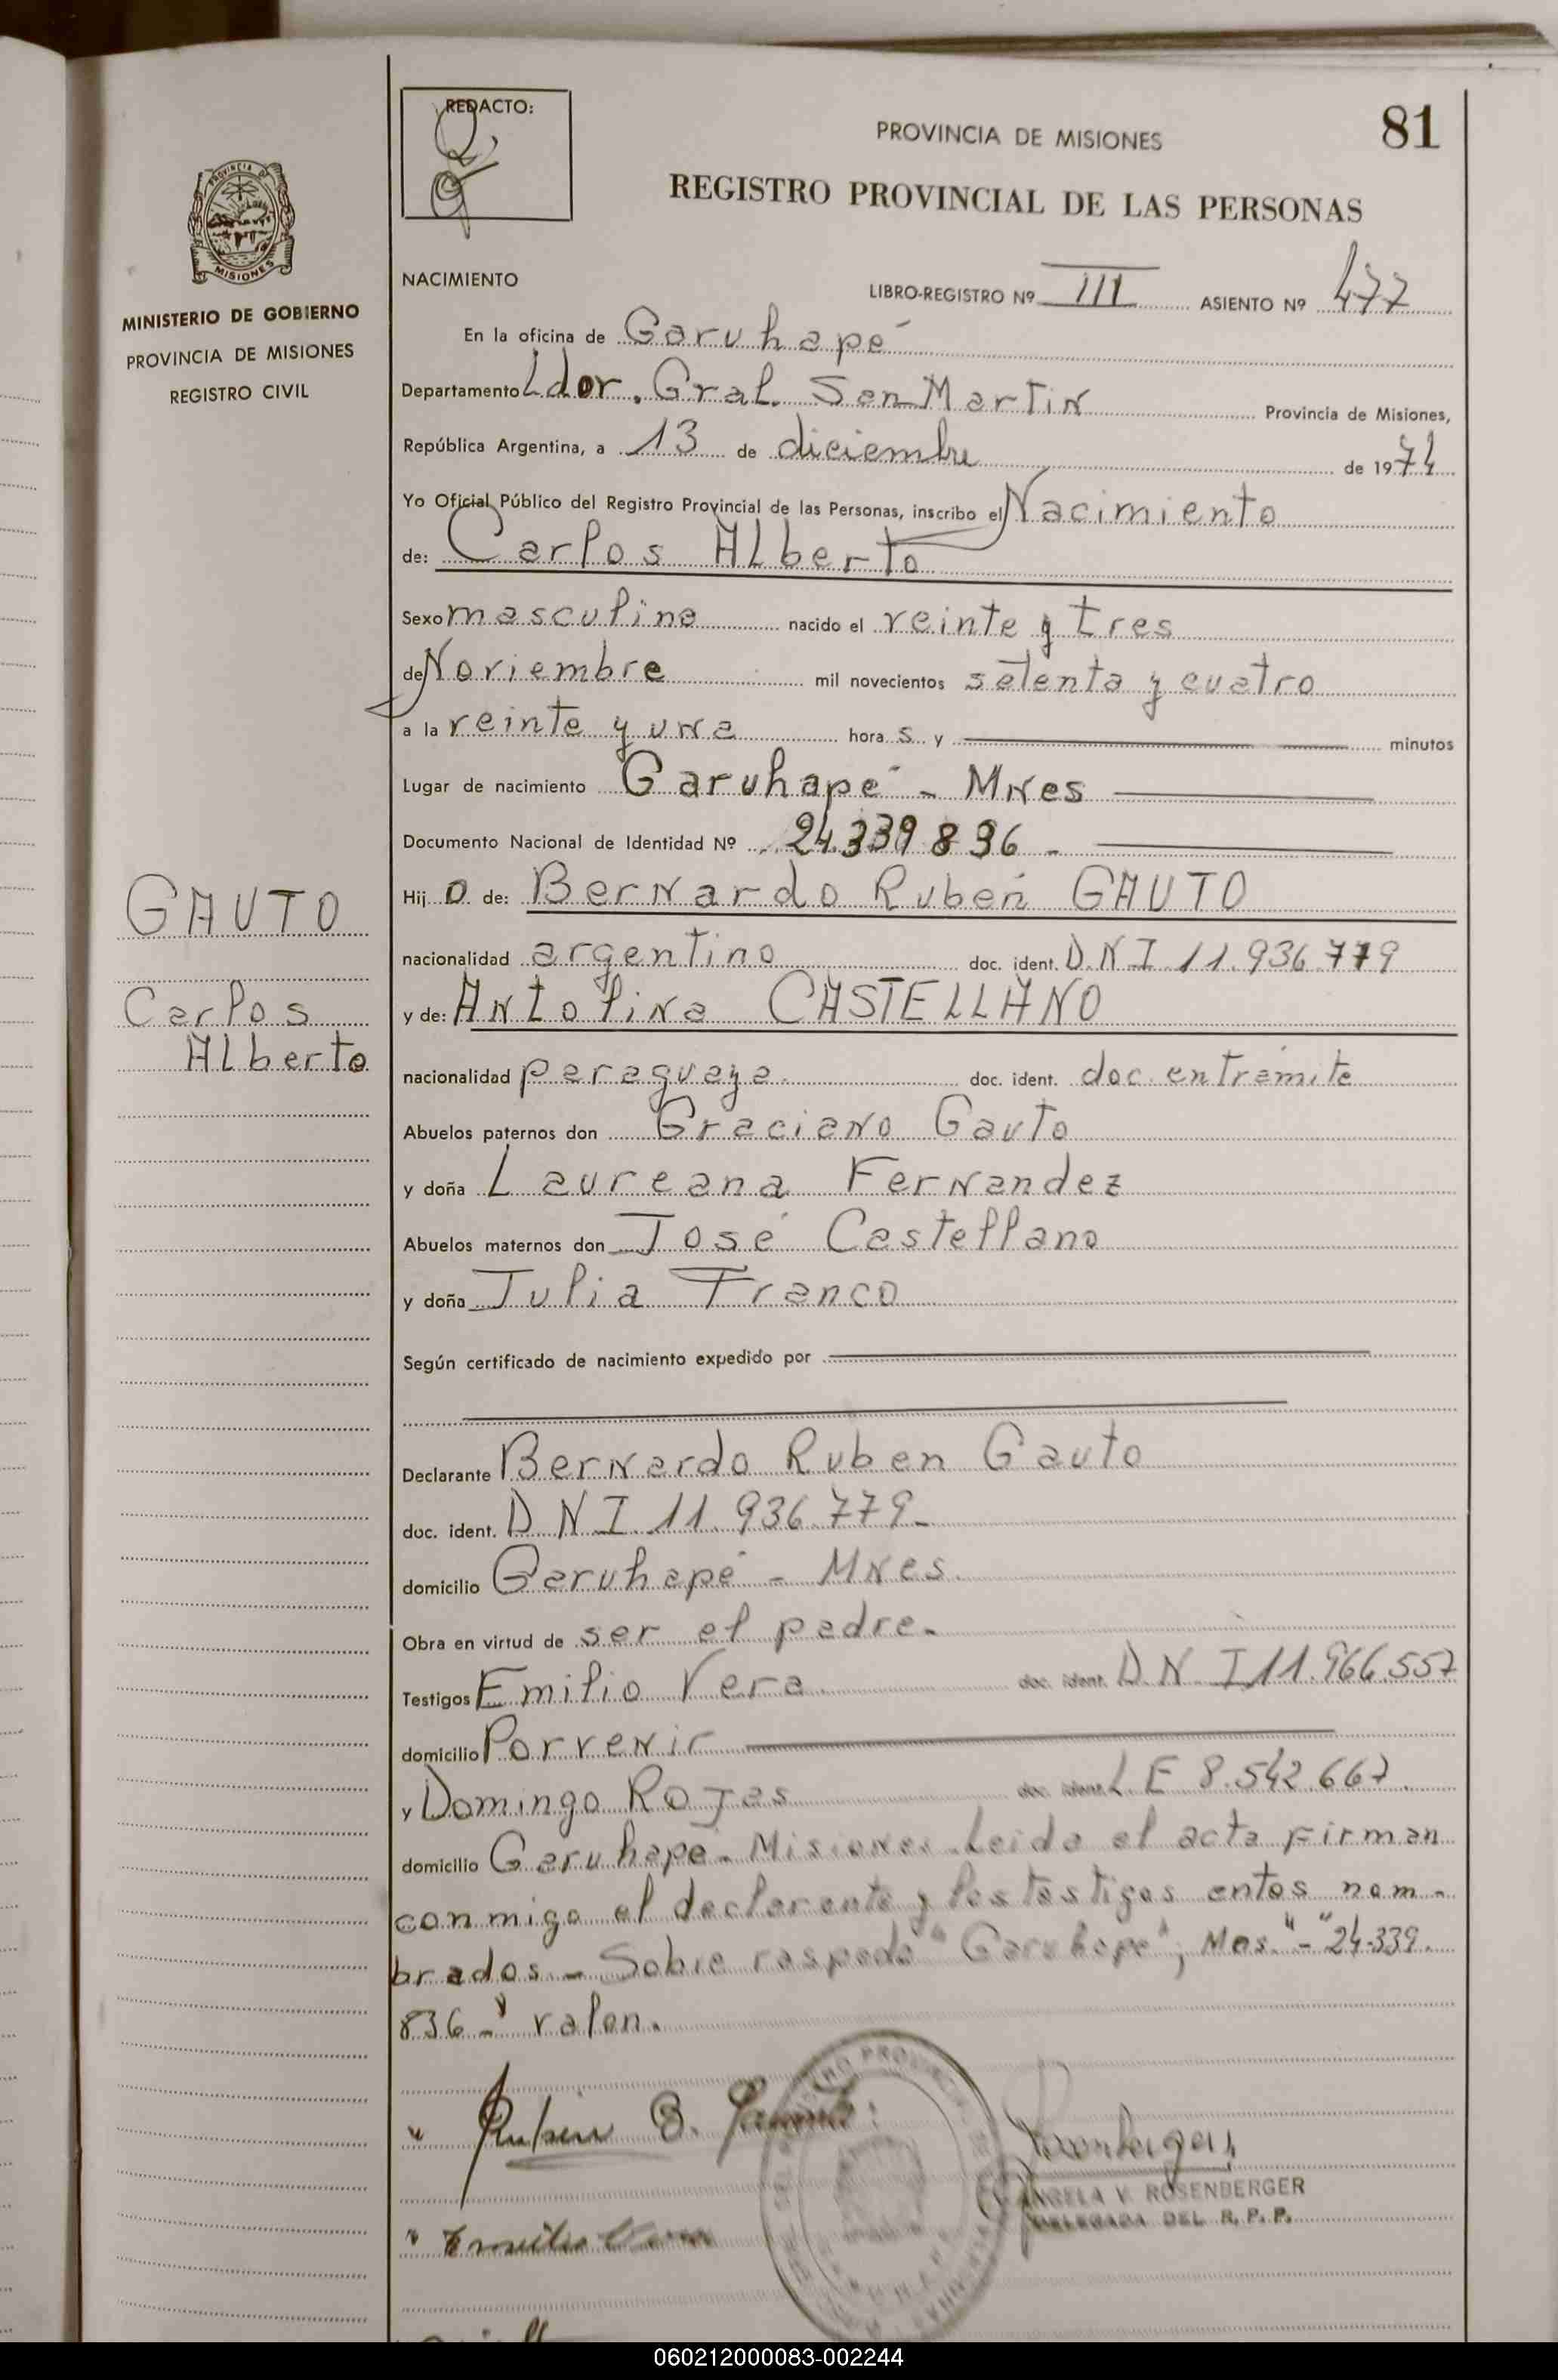 REDACTO:
PROVINCIA DE MISIONES
81
REGISTRO PROVINCIAL DE LAS PERSONAS
PROVINCIA DE
MISIONES
MINISTERIO DE GOBIERNO
PROVINCIA DE MISIONES
REGISTRO CIVIL
NACIMIENTO
LIBRO-REGISTRO Nº III ASIENTO Nº 477
En la oficina de Garuhapé
Departamento Ldor. Gral. San Martin Provincia de Misiones,
República Argentina, a 13 de diciembre de 1974
Yo Oficial Público del Registro Provincial de las Personas, inscribo el Nacimiento
de: Carlos Alberto
Sexo masculino nacido el veinte y tres
de Noviembre mil novecientos setenta y cuatro
a la veinte y una hora s y minutos
Lugar de nacimiento Garuhapé - Mnes
Documento Nacional de Identidad Nº 24.339.836 -
Hij o de: Bernardo Rubén GAUTO
nacionalidad argentino doc. ident. D.N.I 11.936.779
y de: Antolina CASTELLANO
nacionalidad paraguaya. doc. ident. doc. en trámite
Abuelos paternos don Graciano Gauto
y doña Laureana Fernandez
Abuelos maternos don José Castellano
y doña Julia Franco
Según certificado de nacimiento expedido por
Declarante Bernardo Ruben Gauto
doc. ident. D N I 11.936.779-
domicilio Garuhapé - Mnes.
Obra en virtud de ser el padre.
Testigos Emilio Vera doc. ident. D.N.I 11.966.557
domicilio Porvenir
y Domingo Rojas doc. ident. L E 8.542.667.
domicilio Garuhapé - Misiones. Leida el acta firman
conmigo el declarante y los testigos antes nom-
brados.- Sobre raspado "Garuhapé", Mas." - "24.339.
836-" valen.
GAUTO
Carlos
Alberto
" Rubén B. Gauto
ANGELA V. ROSENBERGER
DELEGADA DEL R. P. P.
" Emilio Vera
060212000083-002244